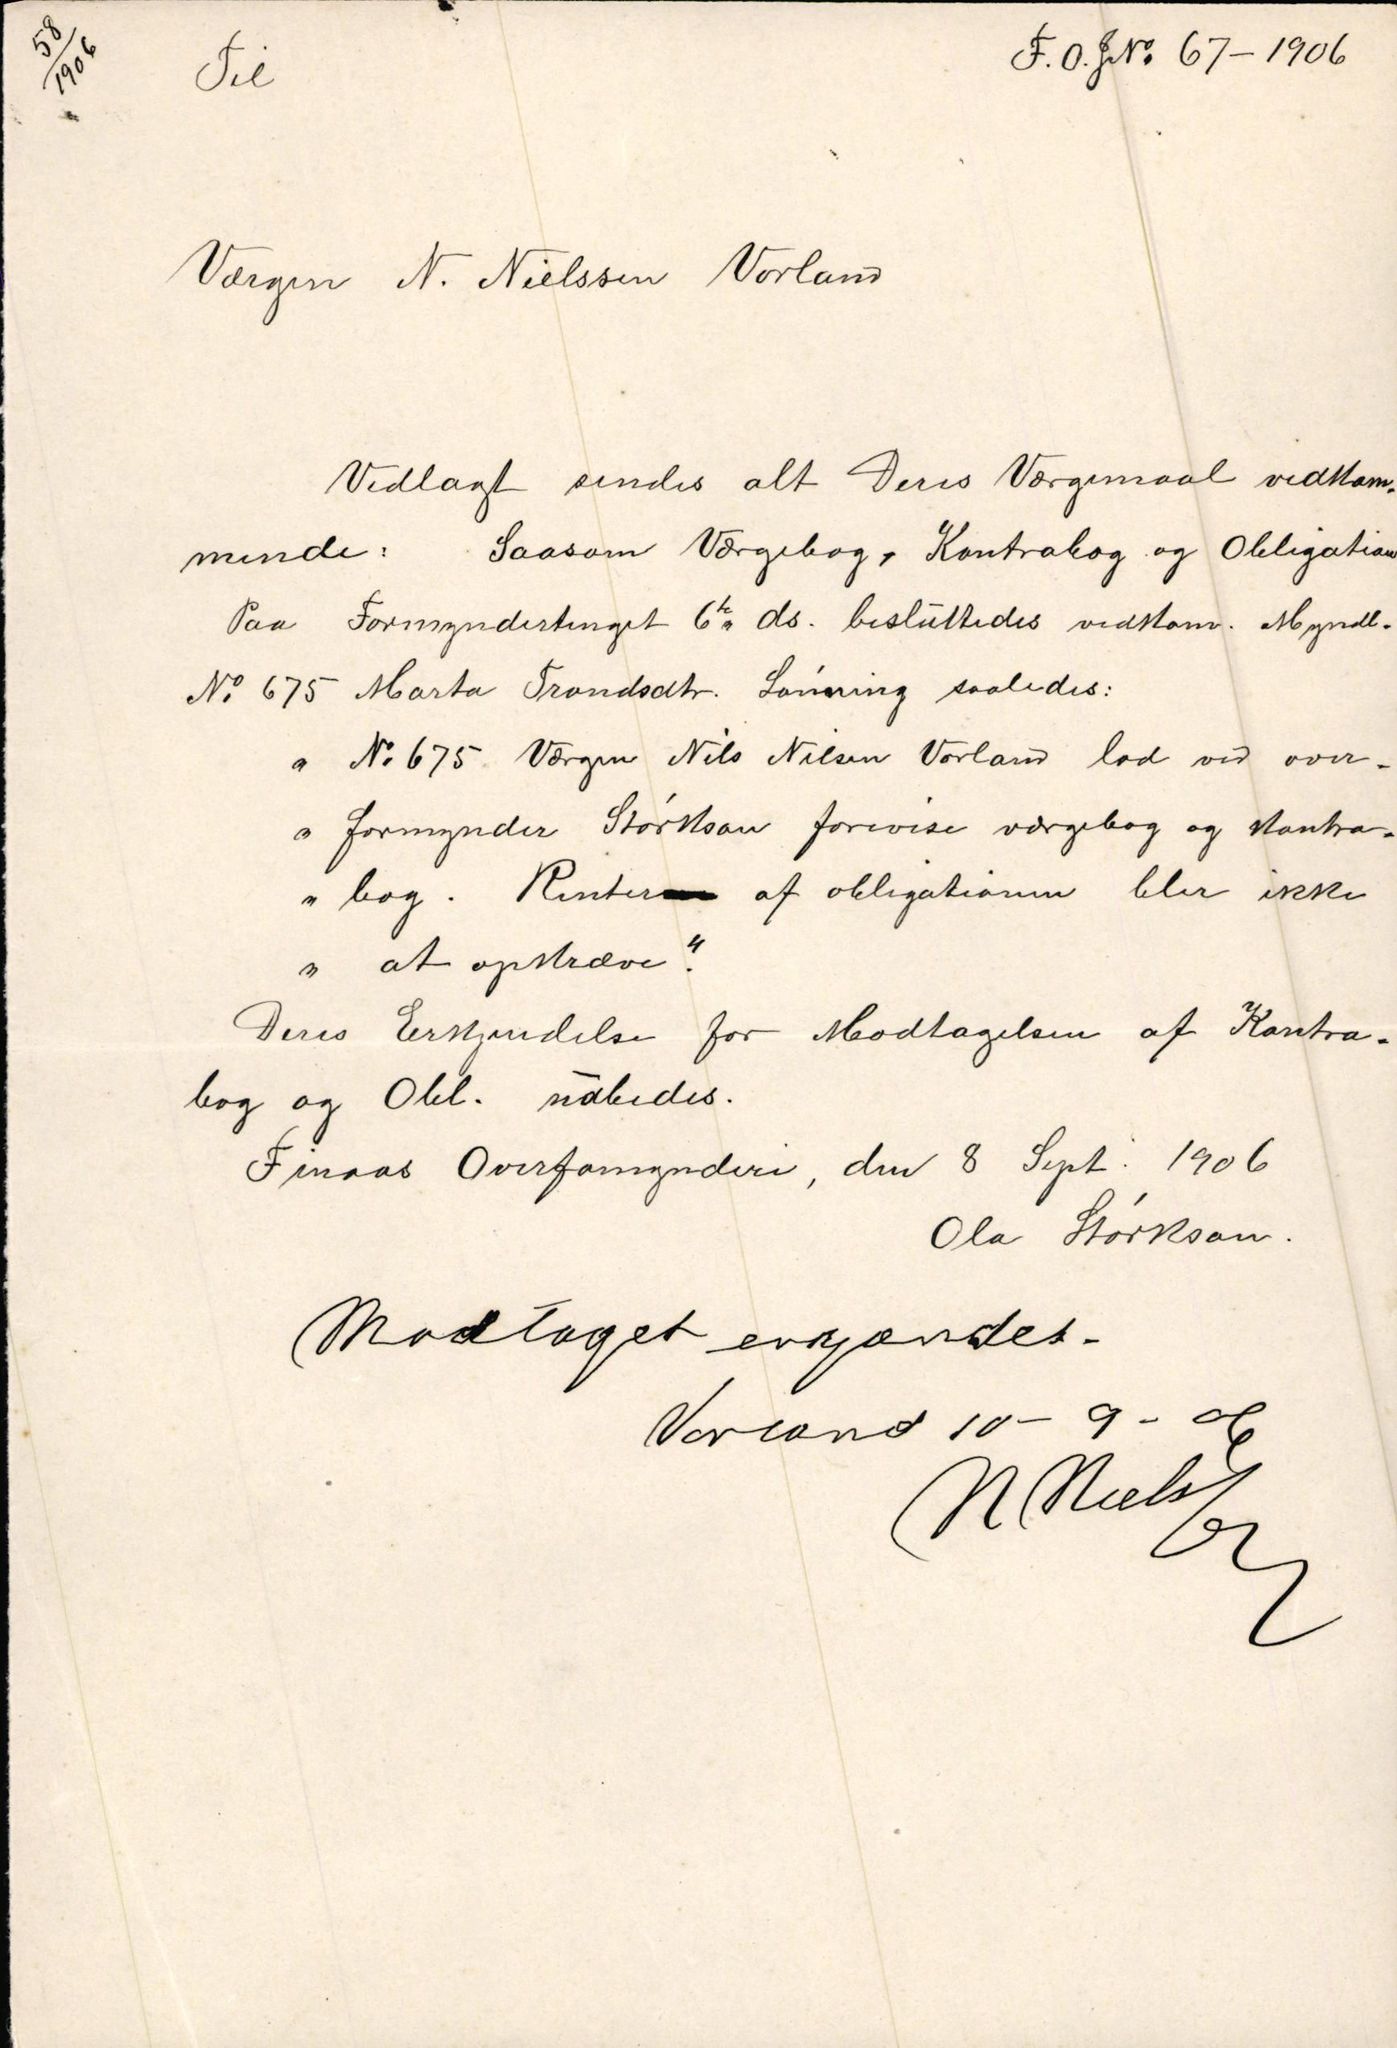 58/1906
Til
F.O.J.No. 67–1906
Værgen N. Nielssen Vorland
Vedlagt sendes alt Deres Værgemaal vedkom-
mende: Saasom Værgebog, Kontrabog og Obligation
Paa Formyndertinget 6te ds. besluttedes vedkom. Myndl.
No. 675 Marta Trondsdtr. Lønning saaledes:
" No. 675 Værgen Nils Nilsen Vorland lod ved over-
" formynder Størkson forevise værgebog og kontra-
" bog. Renter af obligationen blir ikke
" at opkræve".
Deres Erkjendelse for Modtagelsen af Kontra-
bog og Obl. udbedes.
Finaas Overfomynderi, den 8 Sept. 1906
Ola Størkson.
Modtaget erkjendes-
Vorland 10-9-06
N Nielsen